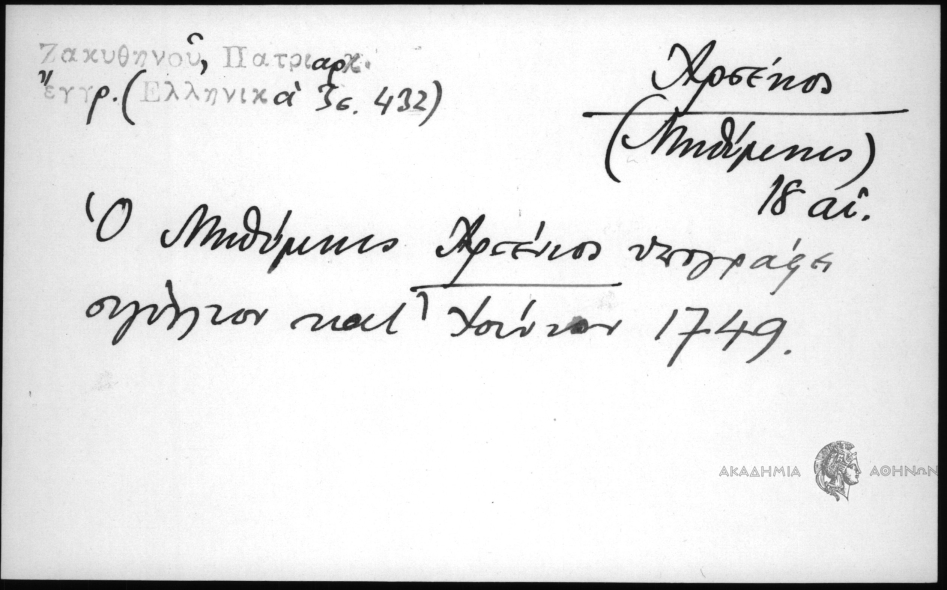 Ζακυθηνοῦ, Πατριαρχ.
ἔγγρ. (Ἑλληνικὰ 3 σ. 432)
Ἀρσένιος
(Μηθύμνης)
18 αἰ.
Ὁ Μηθύμνης Ἀρσένιος ὑπογράφει
σιγίλλιον κατὰ Ἰούνιον 1749.
ΑΚΑΔΗΜΙΑ ΑΘΗΝΩΝ